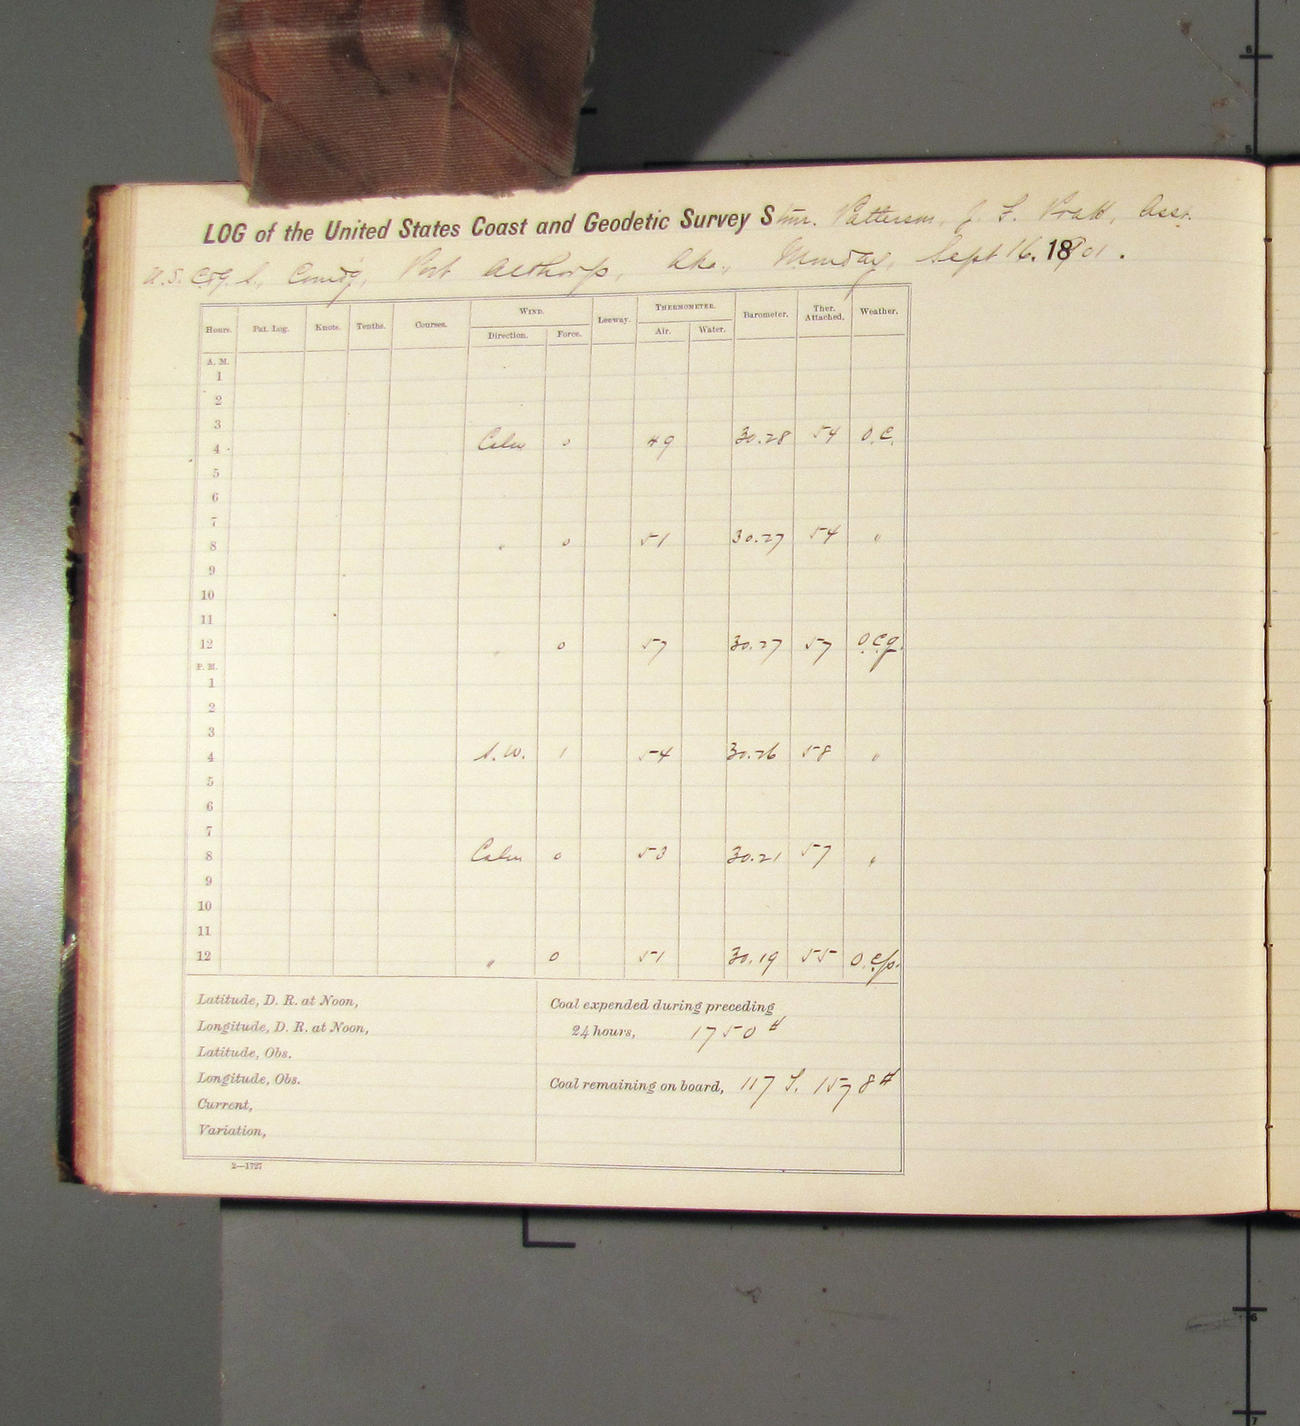 LOG of the United States Coast and Geodetic Survey Stmr. Patterson, J. F. Pratt, Asst.
U.S. C&G. S., Comd'g, Port Althorp, Aka., Monday, Sept 16. 1901.
Hours. Pat. Log. Knots. Tenths. Courses. WIND. Leeway. THERMOMETER. Barometer. Ther. Attached. Weather.
Direction. Force. Air. Water.
A. M.
1
2
3
4 Calm 0 49 30.28 54 O.C.
5
6
7
8 " 0 51 30.27 54 "
9
10
11
12 " 0 57 30.27 57 O.C.g.
P. M.
1
2
3
4 S.W. 1 54 30.26 58 "
5
6
7
8 Calm 0 53 30.21 57 "
9
10
11
12 " 0 51 30.19 55 O.C.p.
Latitude, D. R. at Noon,
Longitude, D. R. at Noon,
Latitude, Obs.
Longitude, Obs.
Current,
Variation,
Coal expended during preceding
24 hours, 1750 #
Coal remaining on board, 117 T. 1578 #
2—1727